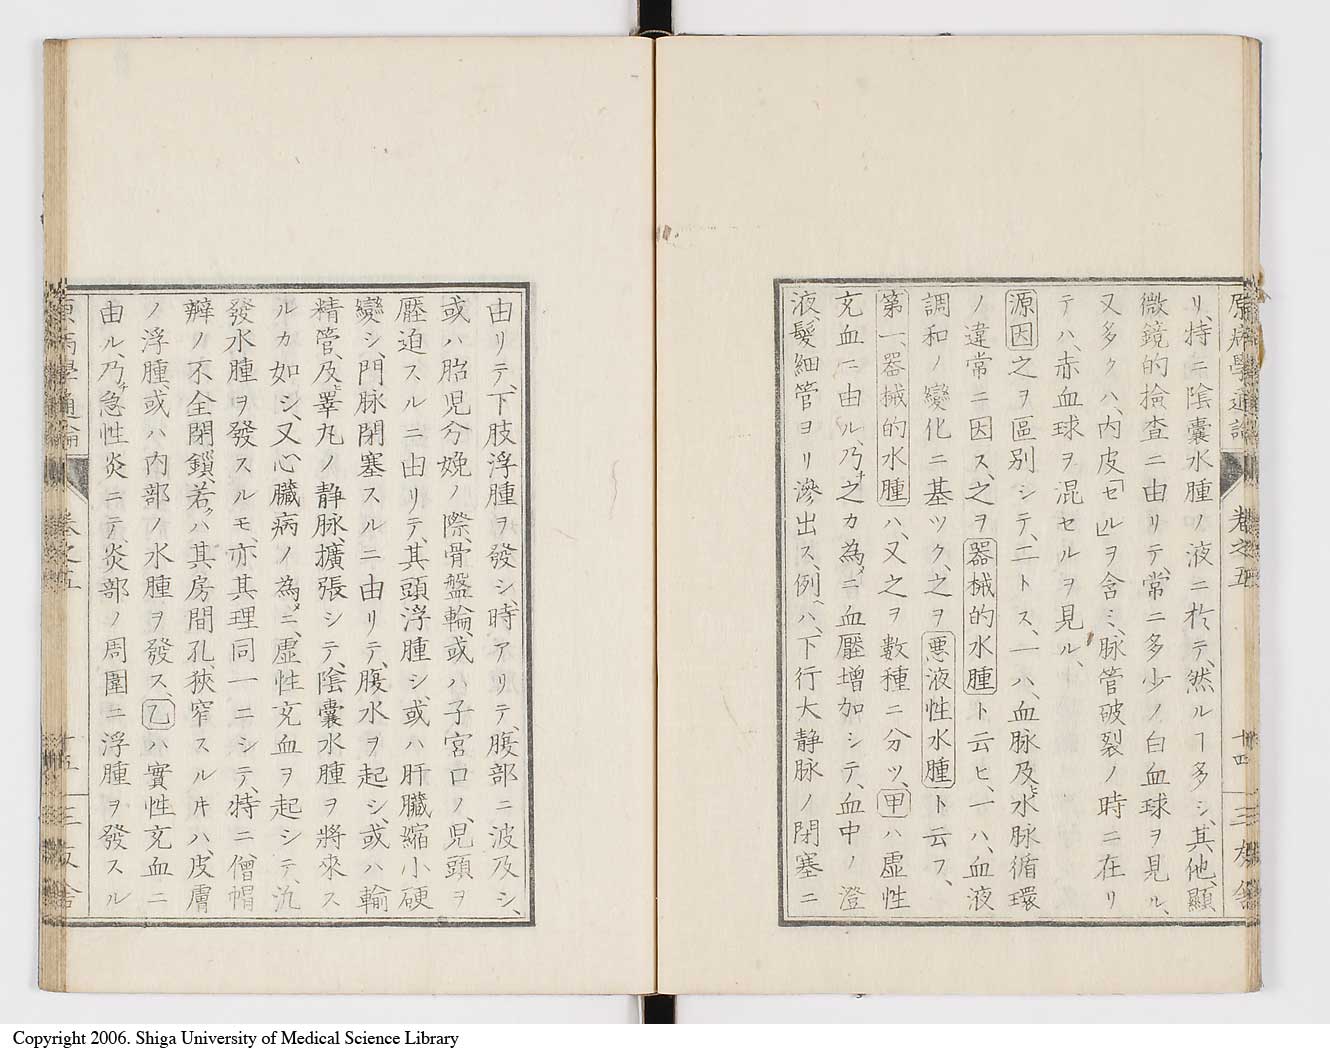 原病學通論 卷之五 十四 三友舎
リ、特ニ陰囊水腫ノ液ニ於テ、然ルヿ多シ、其他、顯
微鏡的撿査ニ由リテ、常ニ多少ノ白血球ヲ見ル、
又多クハ、内皮「セル」ヲ含ミ、脉管破裂ノ時ニ在リ
テハ、赤血球ヲ混セルヲ見ル、
源因之ヲ區別シテ、二トス、一ハ、血脉及ヒ水脉循環
ノ違常ニ因ス、之ヲ器械的水腫ト云ヒ、一ハ、血液
調和ノ變化ニ基ツク、之ヲ悪液性水腫ト云フ、
第一、器械的水腫ハ、又之ヲ數種ニ分ツ、甲ハ虚性
充血ニ由ル、乃チ之カ為メニ血壓増加シテ、血中ノ澄
液、髪細管ヨリ滲出ス、例ヘハ、下行大静脉ノ閉塞ニ
由リテ、下肢浮腫ヲ發シ時アリテ、腹部ニ波及シ、
或ハ胎児分娩ノ際骨盤輪、或ハ子宮口ノ、児頭ヲ
壓迫スルニ由リテ、其頭浮腫シ、或ハ肝臓縮小硬
變シ、門脉閉塞スルニ由リテ、腹水ヲ起シ、或ハ輸
精管、及ヒ睾丸ノ静脉、擴張シテ、陰囊水腫ヲ將來ス
ルカ如シ、又心臓病ノ為メニ、虚性充血ヲ起シテ、汎
發水腫ヲ發スルモ、亦其理同一ニシテ、特ニ僧帽
瓣ノ不全閉鎖、若クハ其房間孔、狹窄スルヰハ、皮膚
ノ浮腫、或ハ内部ノ水腫ヲ發ス、乙ハ實性充血ニ
由ル、乃チ急性炎ニテ、炎部ノ周圍ニ浮腫ヲ發スル
原病學通論 卷之五 十五 三友舎
Copyright 2006. Shiga University of Medical Science Library